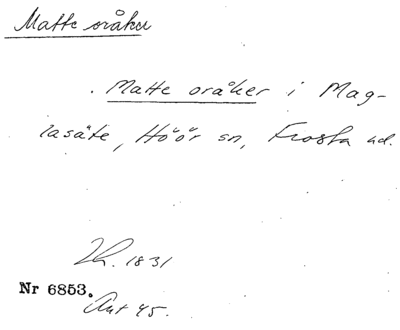 Matte oråker
Matte oråker i Mag-
lasäte, Höör sn, Frosta hd.
1831
Nr 6853.
Ant 45.